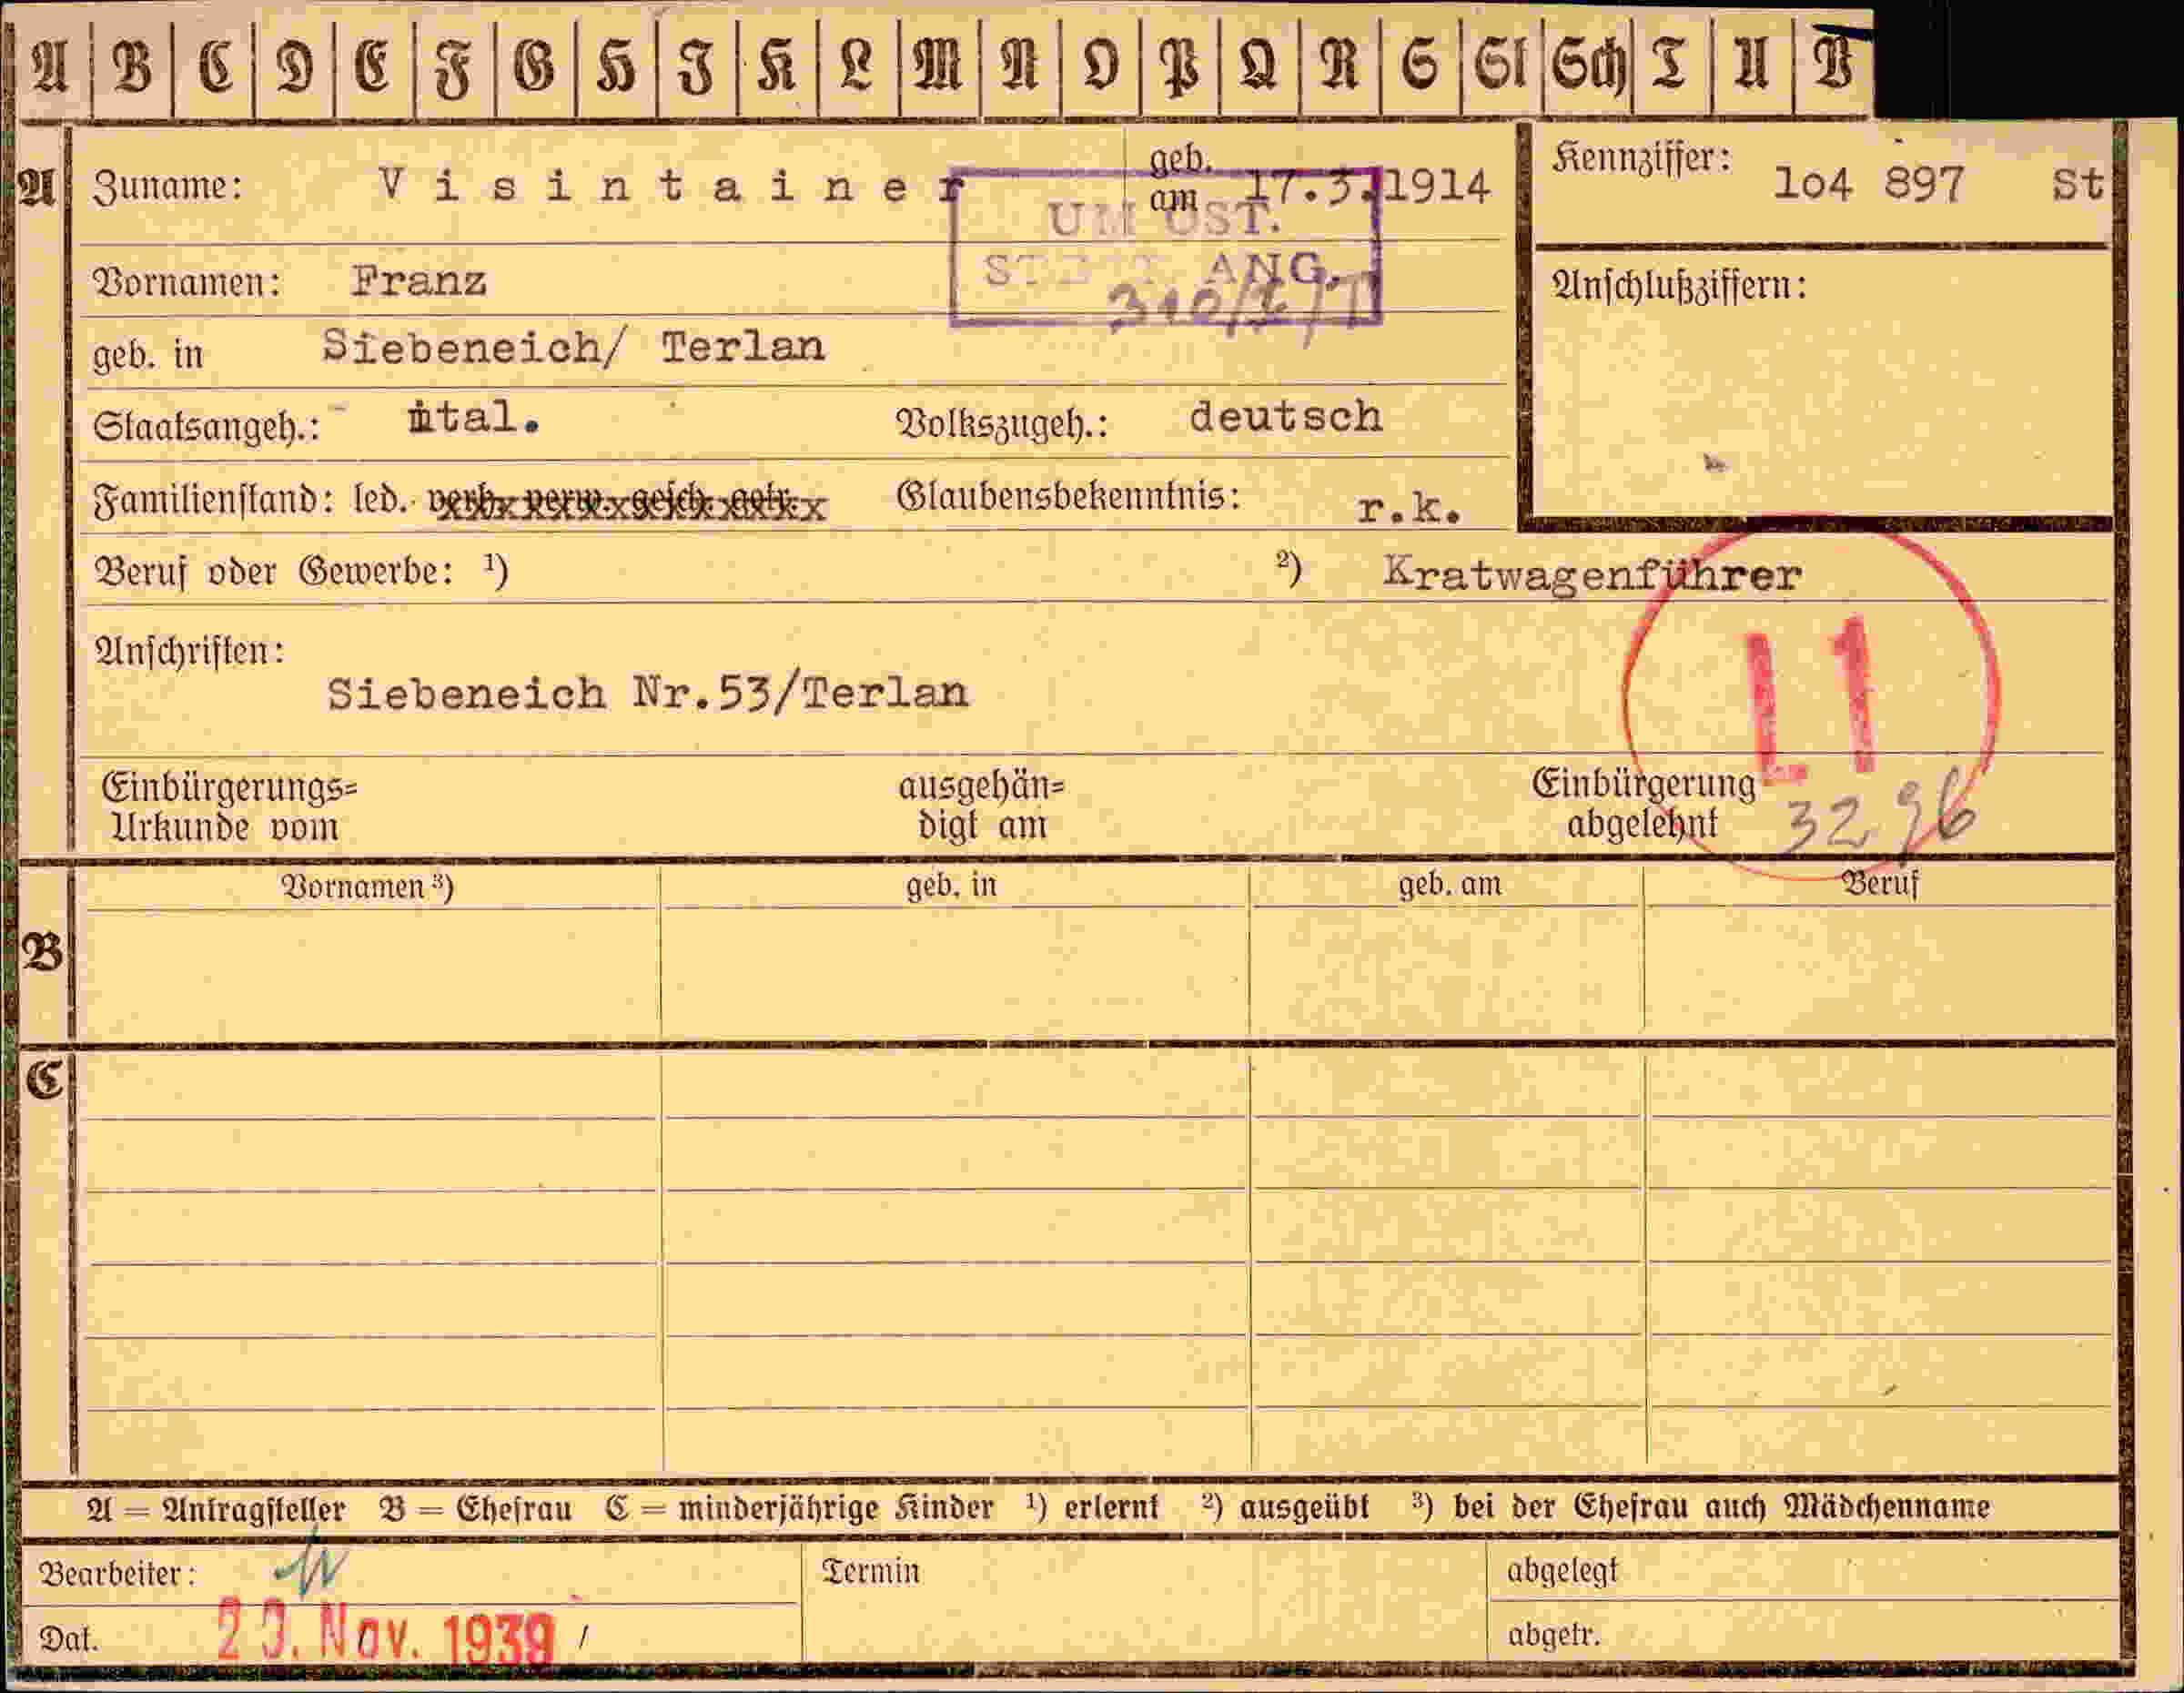 A B C D E F G H I K L M N O P Q R S St Sch T U V
A Zuname: Visintainer geb. am 17.3.1914 Kennziffer: 104 897 St
UM UST.
ANG.
Vornamen: Franz Anschlußziffern:
geb. in Siebeneich/ Terlan
Staatsangeh.: ital. Volkszugeh.: deutsch
Familienstand: led. verh. verw. gesch. getr. Glaubensbekenntnis: r.k.
Beruf oder Gewerbe: ¹) ²) Kratwagenführer
L1
Anschriften:
Siebeneich Nr.53/Terlan
Einbürgerungs= ausgehän= Einbürgerung
Urkunde vom digt am abgelehnt 3296
Vornamen ³) geb. in geb. am Beruf
B
C
A = Antragsteller B = Ehefrau C = minderjährige Kinder ¹) erlernt ²) ausgeübt ³) bei der Ehefrau auch Mädchenname
Bearbeiter: Termin abgelegt
Dat. Nov. 1939 abgetr.